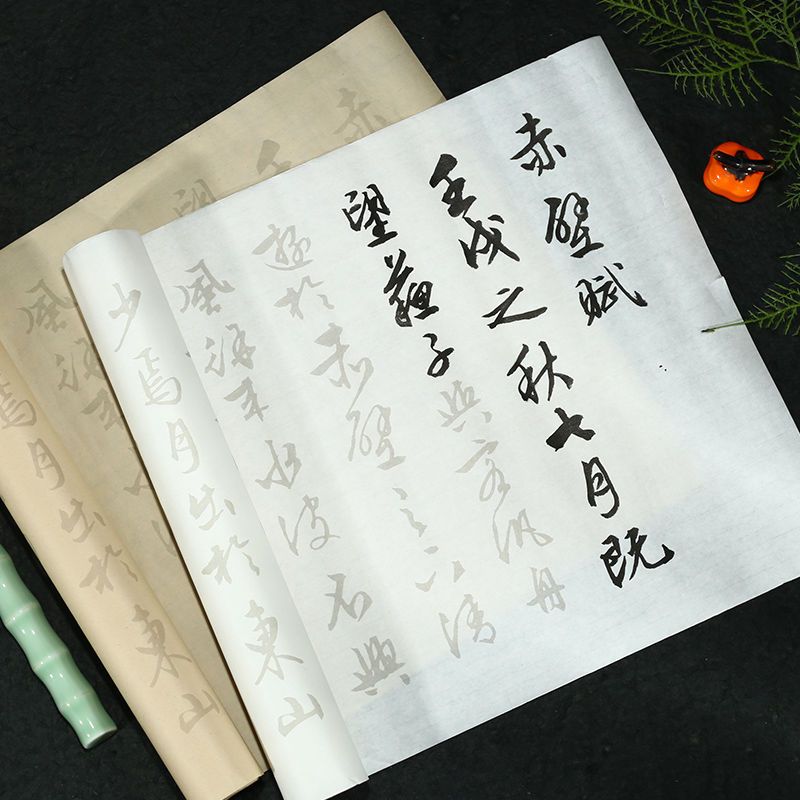 赤壁賦
壬戌之秋七月既
望蘇子與客汎舟
遊於赤壁之下清
風徐来水波不興
少焉月出於東山
赤
壬
望
風徐来
焉月出於東山